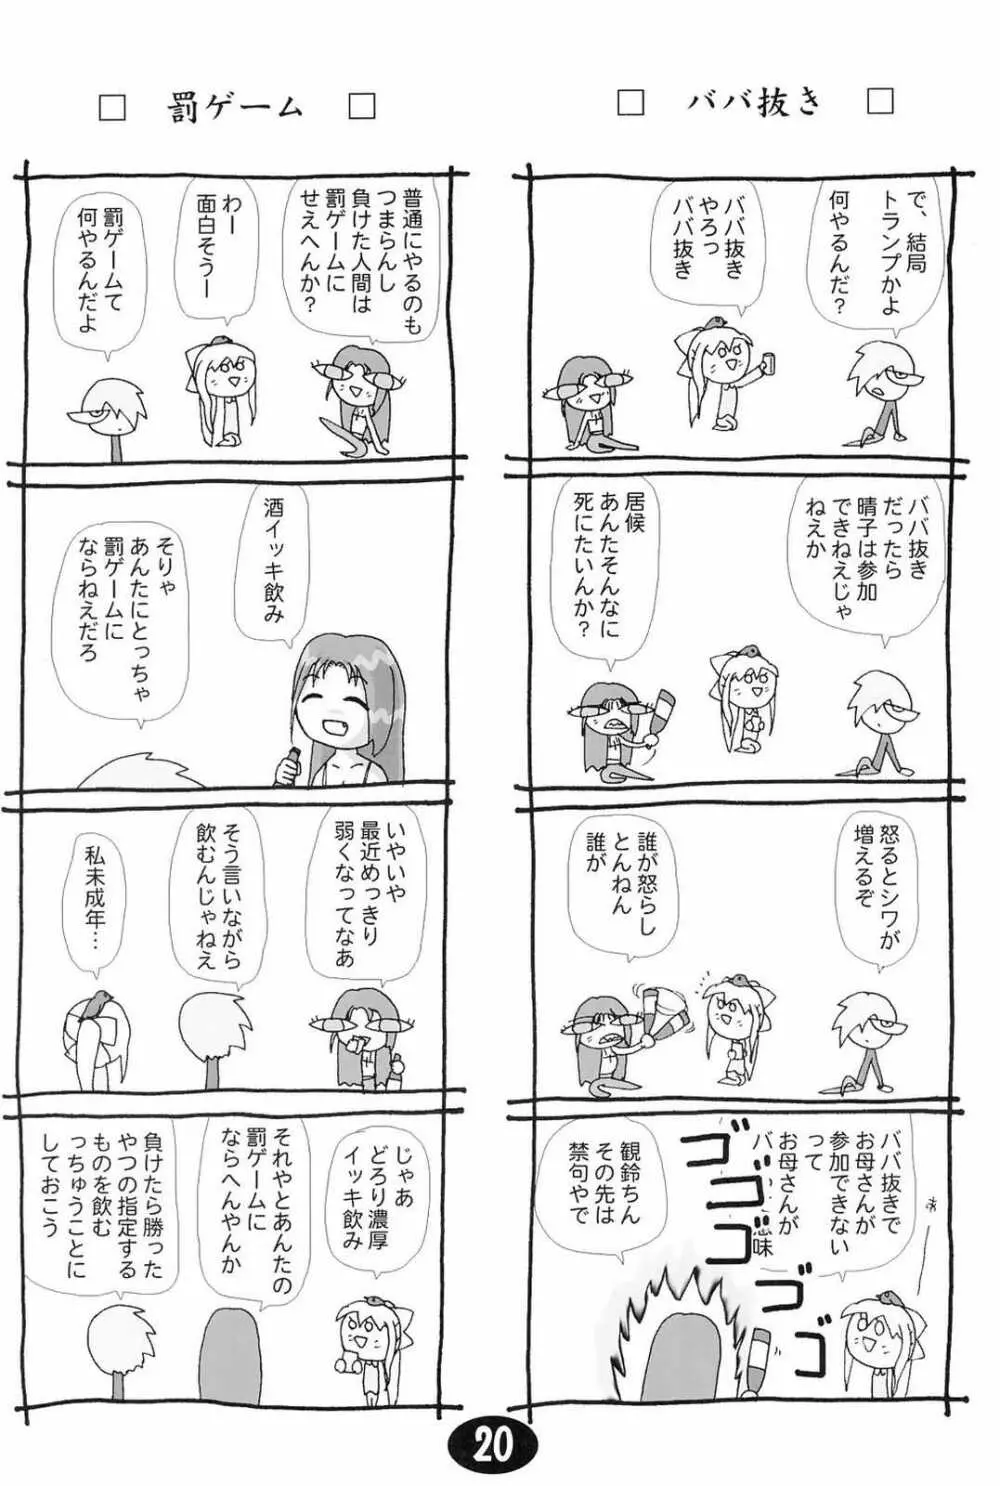 □ ババ抜き □
で、結局
トランプかよ
何やるんだ？
ババ抜き
やろっ
ババ抜き
ババ抜き
だったら
晴子は参加
できねえじゃ
ねえか
居候
あんたそんなに
死にたいんか？
怒るとシワが
増えるぞ
誰が怒らし
とんねん
誰が
ババ抜きで
お母さんが
参加できない
って
お母さんが
ババ
意味
ゴゴゴゴゴゴ
観鈴ちん
その先は
禁句やで
□ 罰ゲーム □
普通にやるのも
つまらんし
負けた人間は
罰ゲームに
せえへんか？
わー
面白そうー
罰ゲームて
何やるんだよ
酒イッキ飲み
そりゃ
あんたにとっちゃ
罰ゲームに
ならねえだろ
いやいや
最近めっきり
弱くなってなあ
そう言いながら
飲むんじゃねえ
私未成年…
じゃあ
どろり濃厚
イッキ飲み
それやとあんたの
罰ゲームに
ならへんやんか
負けたら勝った
やつの指定する
ものを飲む
っちゅうことに
しておこう
20